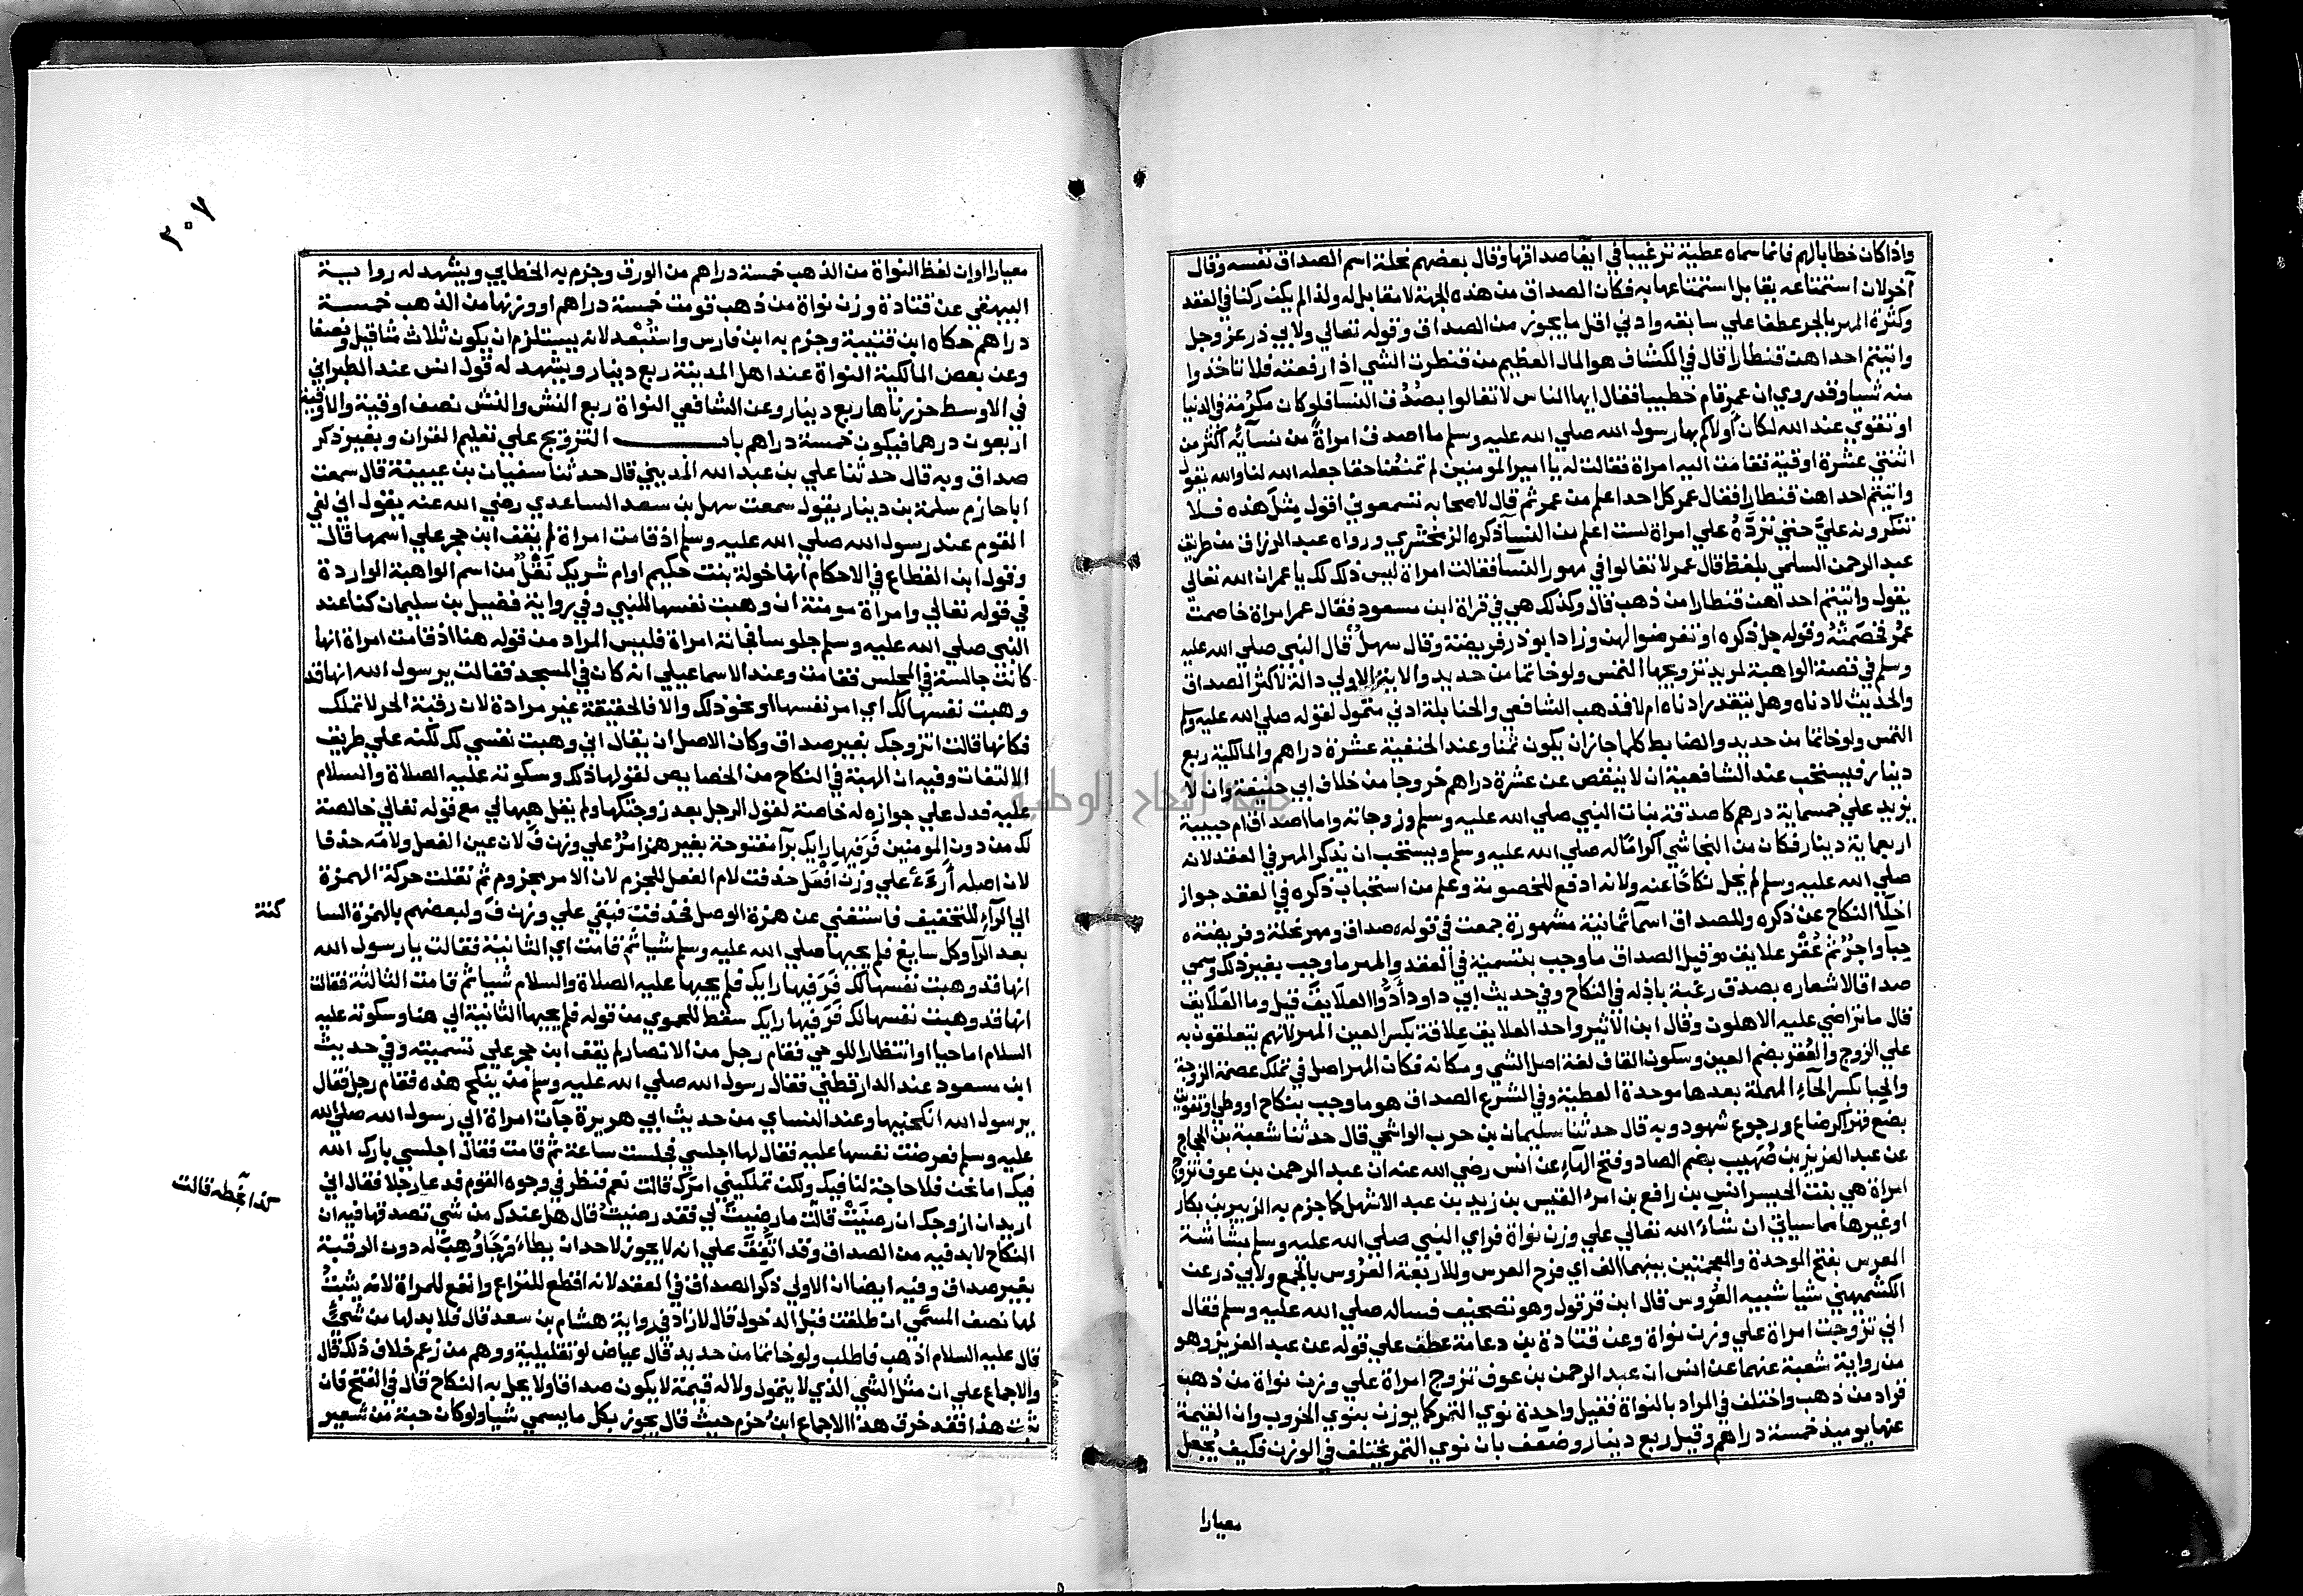 واذا كان خطابا لهم فانما سماه عطية ترغيبا في ايفا صداقها وقال بعضهم نحلة اسم الصداق نفسه وقال
آخر لان استمتاعه يقابل استمتاعها به فكان الصداق من هذه الجهة لا مقابل له ولذا لم يكن ركنا في العقد
وكثرة المهر بالجر عطفا علي سابقه وادني اقل ما يجوز من الصداق وقوله تعالي ولابي ذر عز وجل
واتيتم احداهن قنطارا قال في الكشاف هو المال العظيم من قنطرت الشي اذا رفعته فلا تاخذوا
منه شيا وقد روي ان عمر قام خطيبا فقال ايها الناس لا تغالوا بصُدُق النسا فلو كان مكرُمة في الدنيا
او تقوي عند الله لكان أولاكم بها رسول الله صلي الله عليه وسلم ما اصدق امراةً من نسآئه اكثر من
اثنتي عشرة اوقية فقامت اليه امراة فقالت له يا امير المومنين لم تمنعُنا حقا جعله الله لنا والله يقول
واتيتم احداهن قنطارا فقال عمر كل احد اعلم من عمر ثم قال لاصحابه تسمعوني اقول مثل هذه فلا
تنكرونه عليّ حتي تردَّهُ علي امراة لست اعلم من النسآ ذكره الزمخشري ورواه عبد الرزاق من طريق
عبد الرحمن السلمي بلفظ قال عمر لا تغالوا في مهور النسآ فقالت امراة ليس ذلك لك يا عمر ان الله تعالي
يقول واتيتم احداهن قنطارا من ذهب قال وكذلك هي في قراة ابن مسعود فقال عمر امراة خاصمت
عمرَ فخصمَتْهُ وقوله جل ذكره او تفرضوا لهن وزاد ابو ذر فريضة وقال سهلٌ قال النبي صلي الله عليه
وسلم في قصة الواهبة لمريد تزويجها التمس ولو خاتما من حديد والاية الاولي دالة لاكثر الصداق
والحديث لادناه وهل يتقدر ادناه ام لا فذهب الشافعي والحنابلة ادني متمول لقوله صلي الله عليه وسلم
التمس ولو خاتما من حديد والضابط كلما جاز ان يكون ثمنا وعند الحنفية عشرة دراهم والمالكية ربع
دينار فيستحب عند الشافعية ان لا ينقص عن عشرة دراهم خروجا من خلاف ابي حنيفة وان لا
يزيد علي خمسماية درهم كاصدقة بنات النبي صلي الله عليه وسلم وزوجاته واما اصداق ام حبيبة
اربعماية دينار فكان من النجاشي اكرامًا له صلي الله عليه وسلم ويستحب ان يذكر المهر في العقد لانه
صلي الله عليه وسلم لم يخل نكاحًا عنه ولانه ادفع للخصومة وعلم من استحباب ذكره في العقد جواز
اخلآ النكاح عن ذكره وللصداق اسمآ ثمانية مشهورة جمعت في قوله ه صداق ومهر نحلة وفريضة ه
حِبآ واجرٌ ثم عُقْر علايق ه وقيل الصداق ما وجب بتسمية في العقد والمهر ما وجب بغير ذلك وسمي
صداقا لاشعاره بصدق رغبة باذله في النكاح وفي حديث ابي داود أَدُّوا العلايقَ قيل وما العلايق
قال ما تراضي عليه الاهلون وقال ابن الاثير واحد العلايق عِلاقة بكسر العين المهر لانهم يتعلقون به
علي الزوج والعُقر بضم العين وسكون القاف لغة اصل الشي ومكانه فكان المهر اصل في تملك عصمة الزوجة
والحِبا بكسر الحآءِ المهملة بعدها موحدة العطية وفي الشرع الصداق هو ما وجب بنكاح او وطي او تفويت
بضع قهرا كرضاع ورجوع شهود وبه قال حدثنا سليمان بن حرب الواشحي قال حدثنا شعبة بن الحجاج
عن عبد العزيز بن صُهَيب بضم الصاد وفتح الهآءِ عن انس رضي الله عنه ان عبد الرحمن بن عوف تزوج
امراة هي بنت الحيسر انس بن رافع بن امرء القيس بن زيد بن عبد الاشهل كما جزم به الزبير بن بكار
او غيرها مما سياتي ان شآءَ الله تعالي علي وزن نواة فراي النبي صلي الله عليه وسلم بشاشة
العرس بفتح الموحدة والمعجمتين بينهما الف اي فرح العرس وللاربعة العُرُوس بالجمع ولابي ذر عن
الكشميهني شيا شبيه العُرُوس قال ابن قرقول وهو تصحيف فساله صلي الله عليه وسلم فقال
اني تزوجت امراة علي وزن نواة وعن قتادة بن دعامة عطف علي قوله عن عبد العزيز وهو
من رواية شعبة عنهما عن انس ان عبد الرحمن بن عوف تزوج امراة علي وزن نواة من ذهب
فزاد من ذهب واختلف في المراد بالنواة فقيل واحدة نوي التمر كما يوزن بنوي الخروب وان القيمة
عنها يوميذ خمسة دراهم وقيل ربع دينار وضعف بان نوي التمر يختلف في الوزن فكيف يُجعل
معيارا
٣٠٧
معيارا او ان لفظ النواة من الذهب خمسة دراهم من الورق وجزم به الخطابي ويشهد له رواية
البيهقي عن قتادة وزن نواة من ذهب قومت خمسة دراهم او وزنها من الذهب خمسة
دراهم حكاه ابن قتيبة وجزم به ابن فارس واستُبْعد لانه يستلزم ان يكون ثلاث مثاقيل ونصفا
وعن بعض المالكية النواة عند اهل المدينة ربع دينار ويشهد له قول انس عند الطبراني
في الاوسط حزرناها ربع دينار وعن الشافعي النواة ربع النش والنش نصف اوقية والاوقية
اربعون درهما فيكون خمسة دراهم باب التزويج علي تعليم القران وبغير ذكر
صداق وبه قال حدثنا علي بن عبد الله المديني قال حدثنا سفيان بن عيينة قال سمعت
ابا حازم سلمة بن دينار يقول سمعت سهل بن سعد الساعدي رضي الله عنه يقول اني لفي
القوم عند رسول الله صلي الله عليه وسلم اذ قامت امراة لم يقف ابن حجر علي اسمها قال
وقول ابن القطاع في الاحكام انها خولة بنت حكيم او ام شريك نَقْلٌ من اسم الواهبة الواردة
في قوله تعالي وامراة مومنة ان وهبت نفسها للنبي وفي رواية فضيل بن سليمان كنا عند
النبي صلي الله عليه وسلم جلوسا فجاته امراة فليس المراد من قوله هنا اذ قامت امراة انها
كانت جالسة في المجلس فقامت وعند الاسماعيلي انه كان في المسجد فقالت يرسول الله انها قد
وهبت نفسها لك اي امر نفسها او نحو ذلك والا فالحقيقة غير مرادة لان رقبة الحر لا تملك
فكانها قالت اتزوجك بغير صداق وكان الاصل ان يقال اني وهبت نفسي لك لكنه علي طريق
الالتفات وفيه ان الهبة في النكاح من الخصايص لقولها ذلك وسكوته عليه الصلاة والسلام
عليه فدل علي جوازه له خاصة لقول الرجل بعد زوجنكها ولم يقل هبها لي مع قوله تعالي خالصة
لك من دون المومنين فَرَ فيها رايك برآ مفتوحة بغير همز امرٌ علي وزن فَ لان عين الفعل ولامه حذفا
لان اصله أَرءَءْ علي وزن افْعَل حذفت لام الفعل للجزم لان الامر مجزوم ثم نقلت حركة الهمزة
الي الرآءِ للتخفيف فاستغني عن همزة الوصل فحذفت فبقي علي وزن فَ ولبعضهم بالهمزة السا
كنة
بعد الرآ وكل سايغ فلم يجبها صلي الله عليه وسلم شيا ثم قامت اي الثانية فقالت يا رسول الله
انها قد وهبت نفسها لك فَرَ فيها رايك فلم يجبها عليه الصلاة والسلام شيا ثم قامت الثالثة فقالت
انها قد وهبت نفسها لك فَرَ فيها رايك سقط للحموي من قوله فلم يجبها الثانية الي هنا وسكوته عليه
السلام اما حيا او انتظارا للوحي فقام رجل من الانصار لم يقف ابن حجر علي تسميته وفي حديث
ابن مسعود عند الدارقطني فقال رسول الله صلي الله عليه وسلم من ينكح هذه فقام رجل فقال
يرسول الله انكحنيها وعند النساي من حديث ابي هريرة جآت امراة الي رسول الله صلي الله
عليه وسلم فعرضت نفسها عليه فقال لها اجلسي فجلست ساعة ثم قامت فقال اجلسي بارك الله
فيك اما نحن فلا حاجة لنا فيك ولكن تملكيني امرَك قالت نعم فنظر في وجوه القوم فدعا رجلا فقال اني
كذا بخطه قالت
اريد ان ازوجك ان رضيتْ قالت ما رضيتَ لي فقد رضيتُ قال هل عندك من شي تصدقها فيه ان
النكاح لا بد فيه من الصداق وقد اتُّفِقَ علي انه لا يجوز لاحد ان يطاءَ فرجًا وُهبَ له دون الرقبة
بغير صداق وفيه ايضا ان الاولي ذكر الصداق في العقد لانه اقطع للنزاع وانفع للمراة لانه يثبتُ
لها نصف المسمَّي ان طلقت قبل الدخول قال لا زاد في رواية هشام بن سعد قال فلا بد لها من شيءٍ
قال عليه السلام اذهب فاطلب ولو خاتما من حديد قال عياض لو تقليلية ووهم من زعم خلاف ذلك قال
والاجماع علي ان مثل الشي الذي لا يتمول ولا له قيمة لا يكون صداقا ولا يحل به النكاح قال في الفتح فان
ثبت هذا فقد خرق هذا الاجماع ابن حزم حيث قال يجوز بكل ما يسمي شيا ولو كان حبة من شعير
جامعة النجاح الوطنية